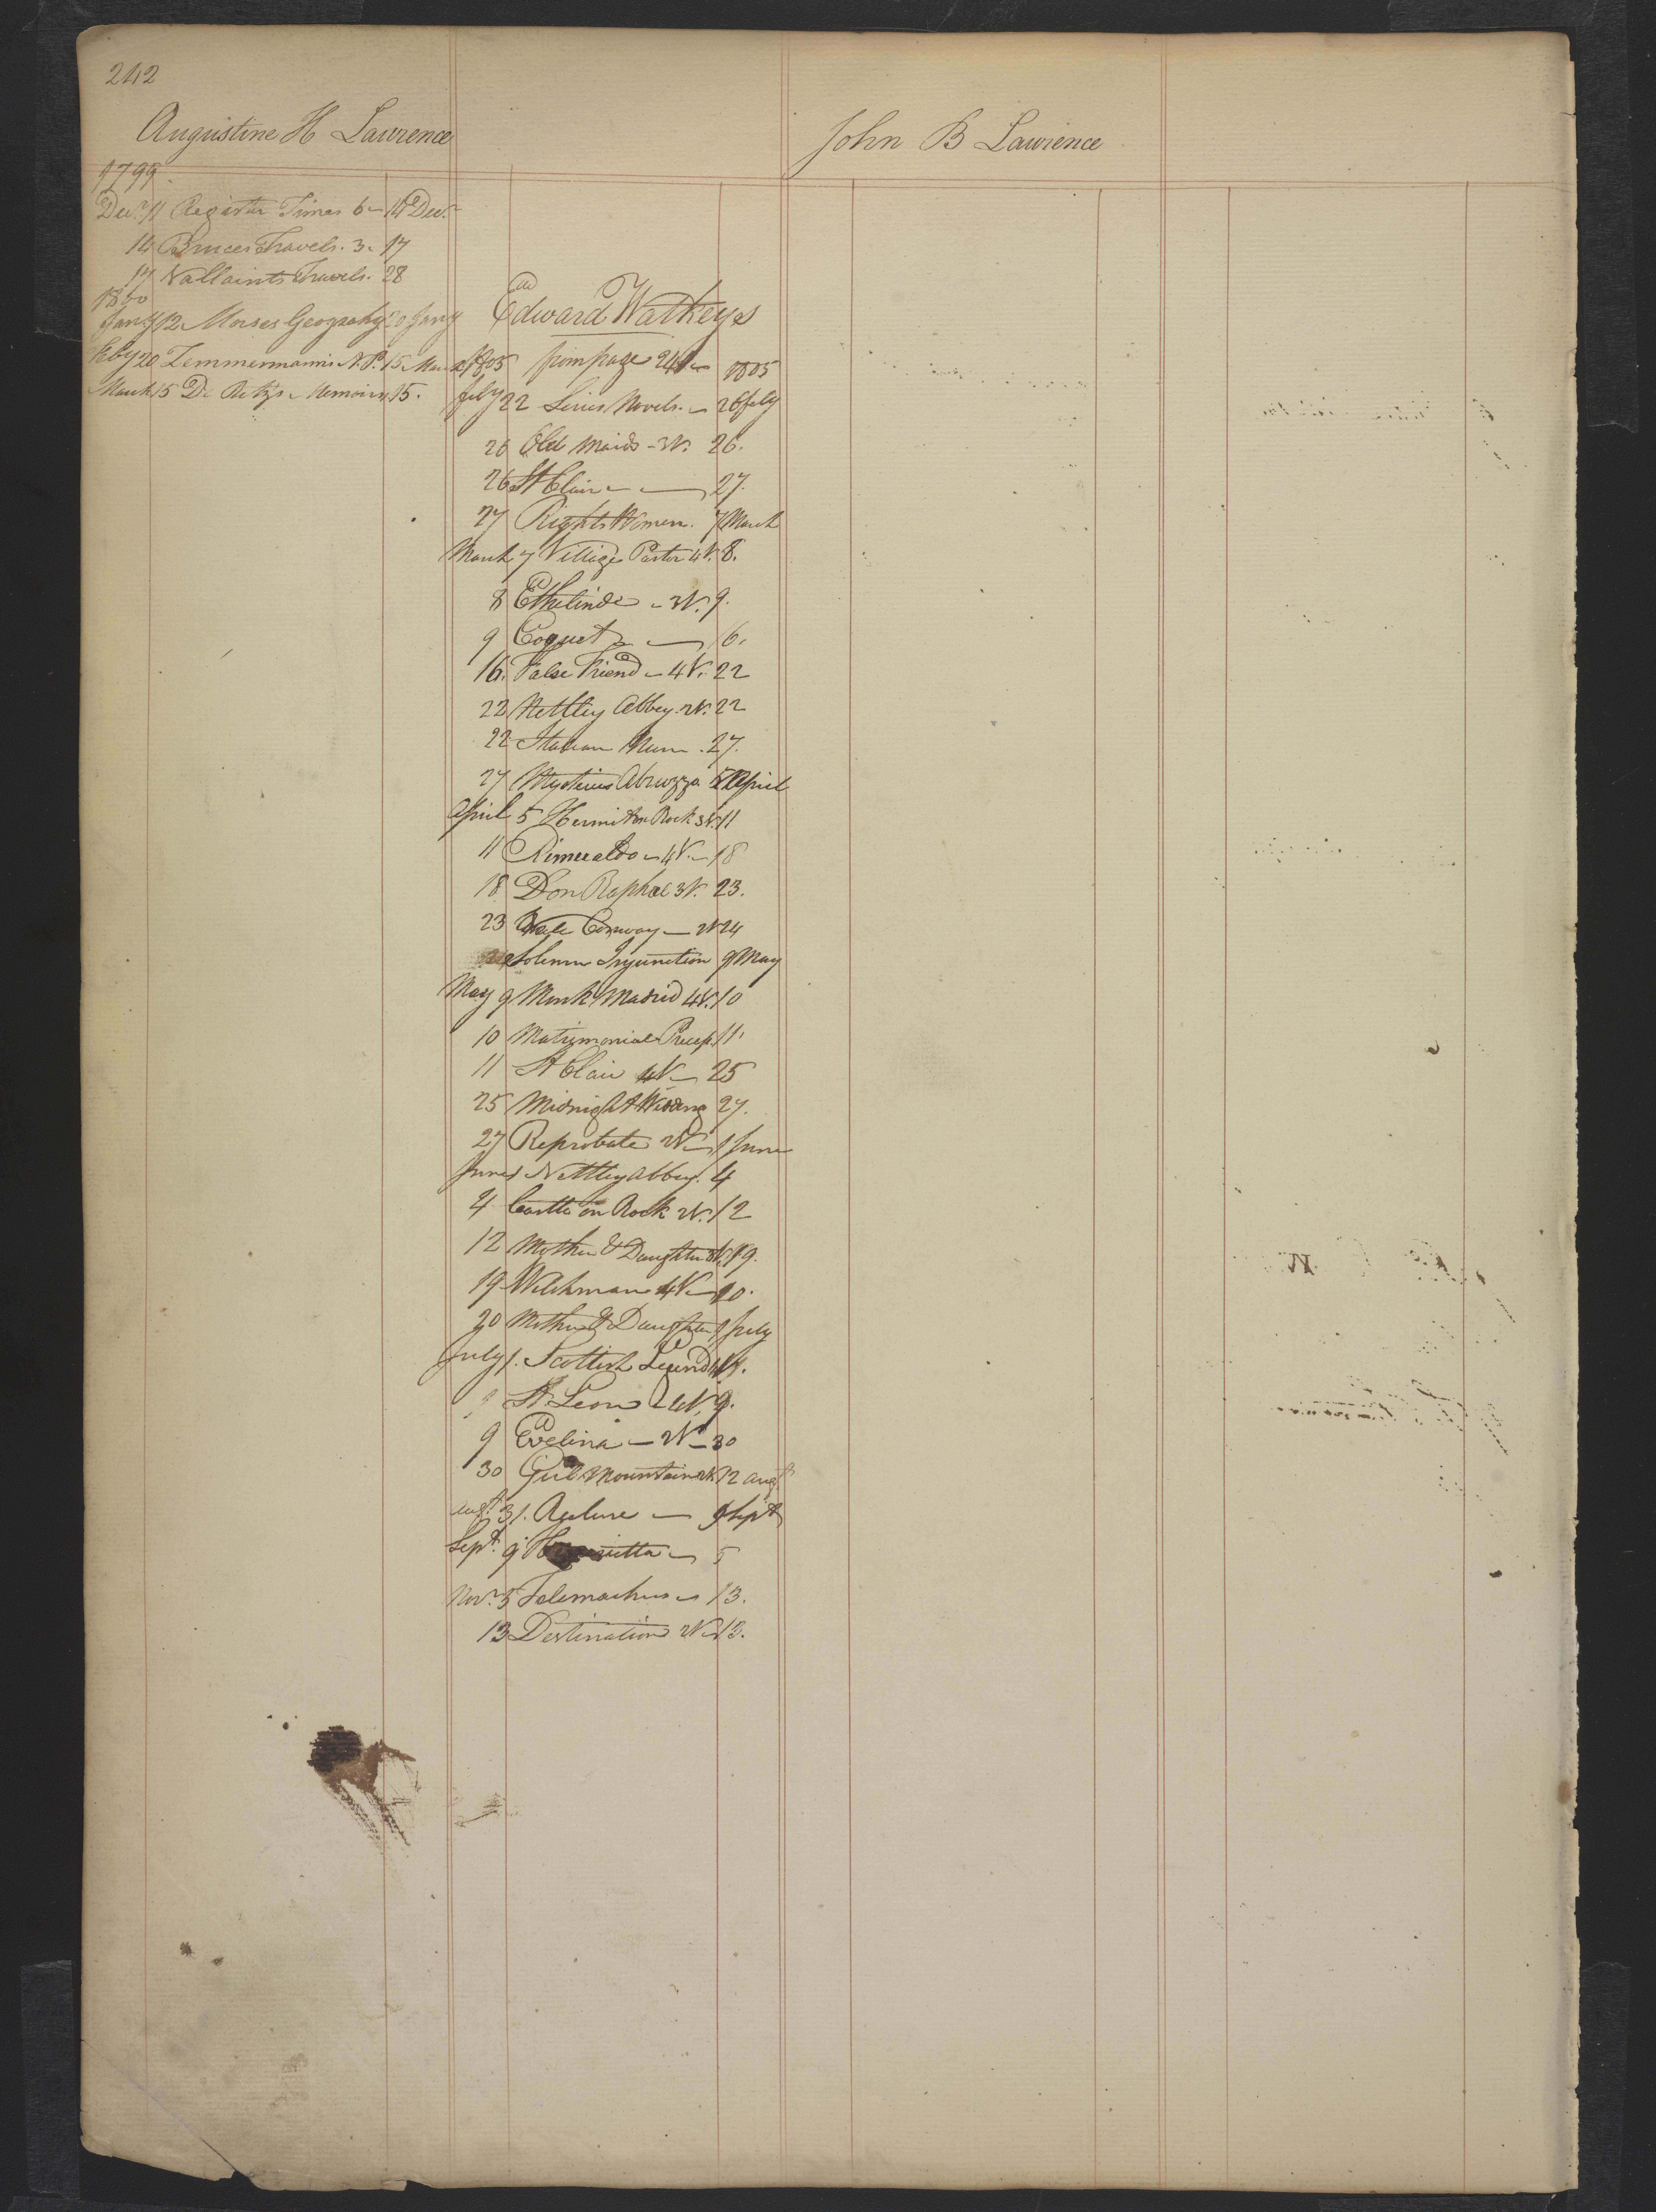 242
Augustine H Lawrence
1799
Decr 11 Register Times 6 14 Decr
14 Bruces Travels. 3. 17
17 Vallaints Travels. 28
1800
Jany 12 Morses Geography 20 Jany
Feby 20 Zemmermanns N.P. 15 March
March 15 De Retzs Memoirs 15.
Edward Watkeys
1805 from page 241 1805
feby 22 Series Novels. 26 feby
26 Old Maids - 3V. 26.
26 St Clair 27.
27 Rights Women. 7 March
March 7 Village Pastor 4V. 8.
8 Ethelinde 3V. 9.
9 Coquet 16.
16. False Friend 4V. 22
22 Nettley Abbey. 2V. 22
22 Italian Nun. 27.
27 Mysteries Abruzza 5 April
April 5 Hermit on Rock 3V. 11
11 Rimeraldo 4V. 18
18 Don Raphael 3V. 23.
23 Vale Conway 2V 24
Solemn Injunction 9 May
May 9 Monk Madrid 4V. 10
10 Matrimonial Precep. 11.
11 St Clair 4V 25
25 Midnight Weding 27.
27 Reprobate 2V 1 June
June 1 Nettley Abbey. 4
4 Castle on Rock 2V. 12
12 Mother & Daughter 3V. 19.
19 Welchman 4V 20.
20 Mother & Daughter 1 July
July 1. Scottish Legend
St Leon 9.
9 Evelina 2V 30
30 Girl Mountain 2V. 12 augt
augt 31. Recluse 9 Sept
Sept. 9 Henrietta 5
Novr. 5 Telemachus 13.
13 Destination 2V 13.
John B Lawrence